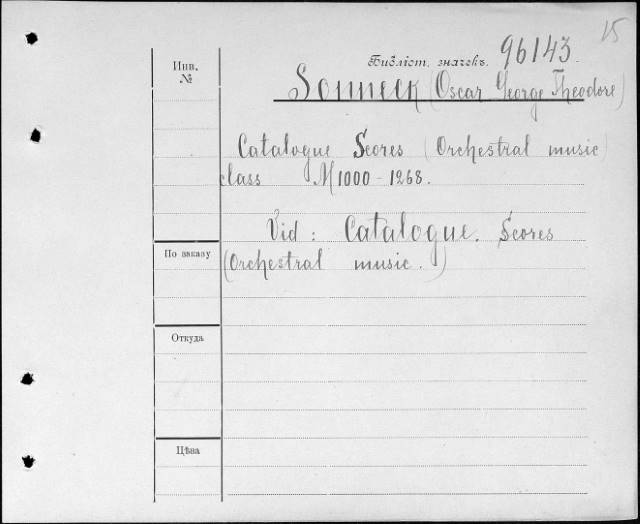 15
Инв.
№
Библіот. значекъ. 96143
Sonneck (Oscar George Theodore)
Catalogue Scores (Orchestral music)
class M 1000 - 1268.
Vid: Catalogue. Scores
(Orchestral music.)
По заказу
Откуда
Цѣна